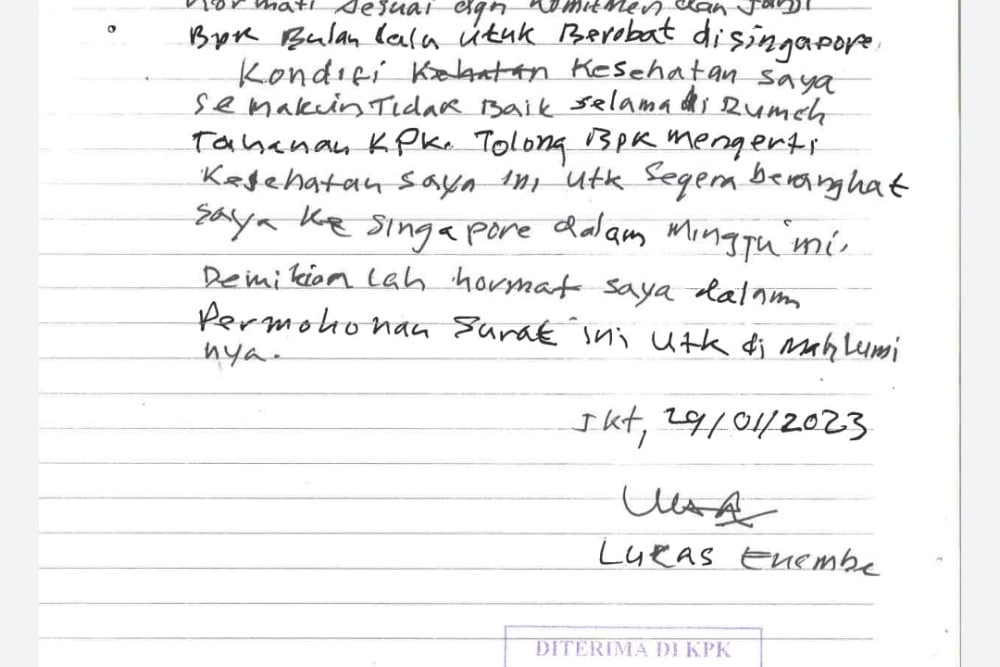 hormati sesuai dgn komitmen dan janji
Bpk Bulan lalu utuk Berobat disingapore.
Kondisi Kehatan Kesehatan saya
semakuin Tidak Baik selama di Rumah
Tahanan KPK. Tolong Bpk mengerti
Kesehatan saya ini, utk Segera berangkat
saya ke singapore dalam minggu ini.
Demikian Lah hormat saya dalam
Permohonan Surat ini utk di mahlumi
nya.
Jkt, 29/01/2023
Lukas Enembe
DITERIMA DI KPK